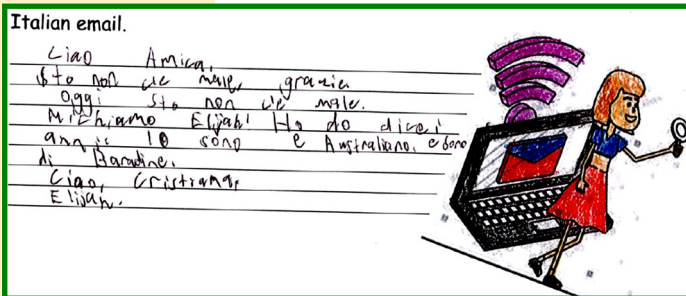 Italian email.
Ciao Amica,
Sto non c'e male, grazie.
Oggi sto non c'e male.
Mi chiamo Elijah! Ho do dieci
anni: Io sono e Australiano. e sono
di Baradine.
Ciao, Cristiana,
Elijah.